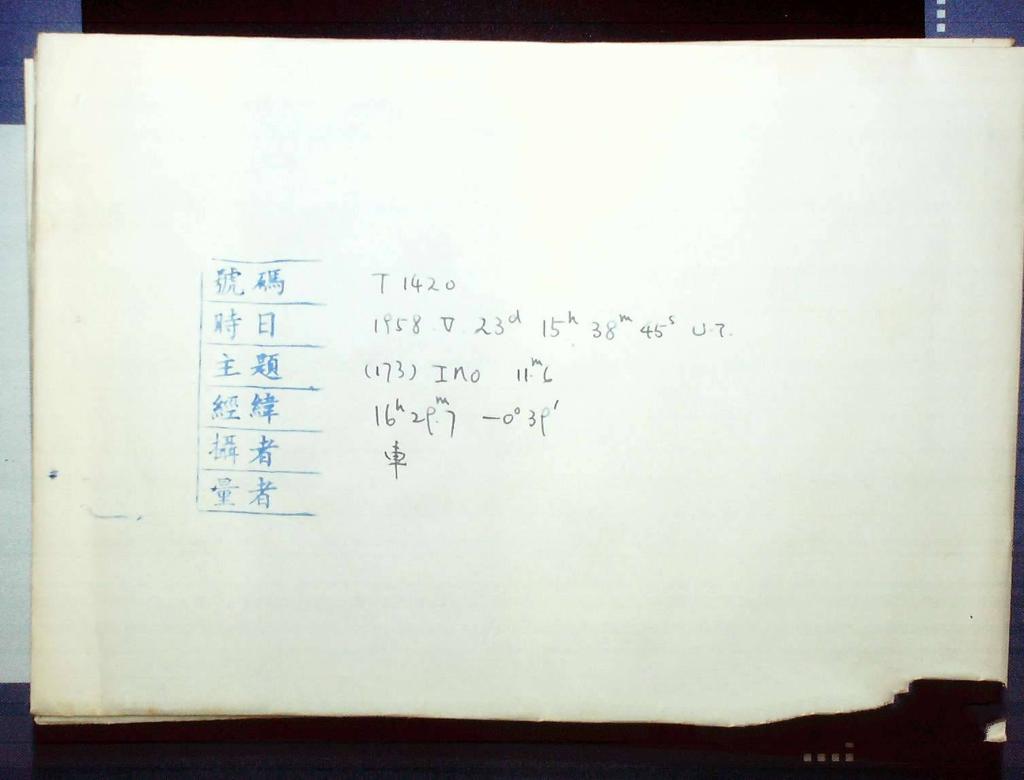 號碼 T 1420
時日 1958 V 23ᵈ 15ʰ 38ᵐ 45ˢ U.T.
主題 (173) Ino 11ᵐ.6
經緯 16ʰ 29ᵐ.7 -0° 39'
攝者 車
量者